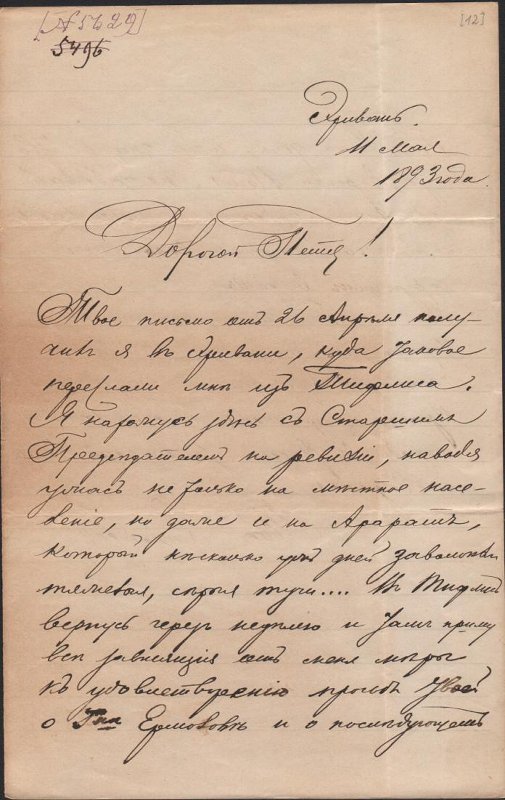 [№5629]
5496
[12]
Эривань.
11 Мая
1893 года.
Дорогой Петя!
Твое письмо отъ 26 Апрѣля полу-
чилъ я въ Эривани, куда таковое
переслали мнѣ изъ Тифлиса.
Я нахожусь здѣсь съ Старшимъ
Предсѣдателемъ на ревизіи, наводя
ужасъ не только на мѣстное насе-
леніе, но даже и на Араратъ,
который нѣсколько дней
тучи.... Въ Тифлисъ
вернусь черезъ недѣлю и тамъ приму
всѣ зависящія отъ меня мѣры
къ удовлетворенію просьбы твоей
о Ермоловѣ и о послѣдующемъ